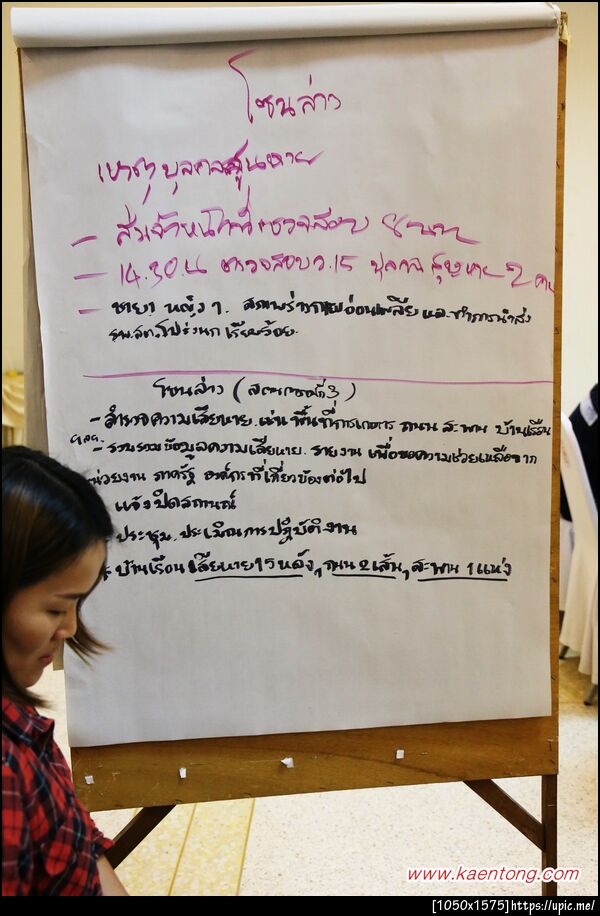 โซนล่าง
เหตุ บุคคลสูญหาย
- สั่งเจ้าหน้าที่ตรวจสอบ
- 14.30 น ตรวจสอบว.15 บุคคลสูญหาย 2 คน
- ชาย 1 หญิง 1. สภาพร่างกายอ่อนเพลีย และทำการนำส่ง
รพ.สต.โป่งนก เรียบร้อย.
โซนล่าง (สถานการณ์ที่ 3)
- สำรวจความเสียหาย เช่น พื้นที่การเกษตร ถนน สะพาน บ้านเรือน
- รวบรวมข้อมูลความเสียหาย. รายงาน เพื่อขอความช่วยเหลือจาก
หน่วยงาน ภาครัฐ องค์กรที่เกี่ยวข้องต่อไป
แจ้งปิดสถานณ์
ประชุม. ประเมิณการปฏิบัติงาน
* บ้านเรือน เสียหาย 15 หลัง, ถนน 2 เส้น, สะพาน 1 แห่ง
www.kaentong.com
[1050x1575]https://upic.me/